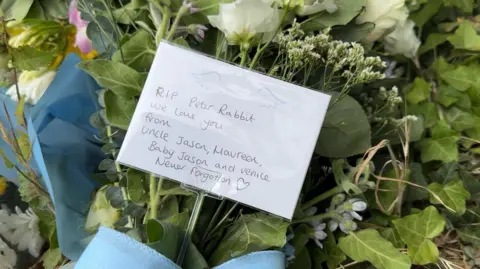 RIP Peter Rabbit
we love you
from
Uncle Jason, Maureen,
Baby Jason and venice
Never forgotten ♡